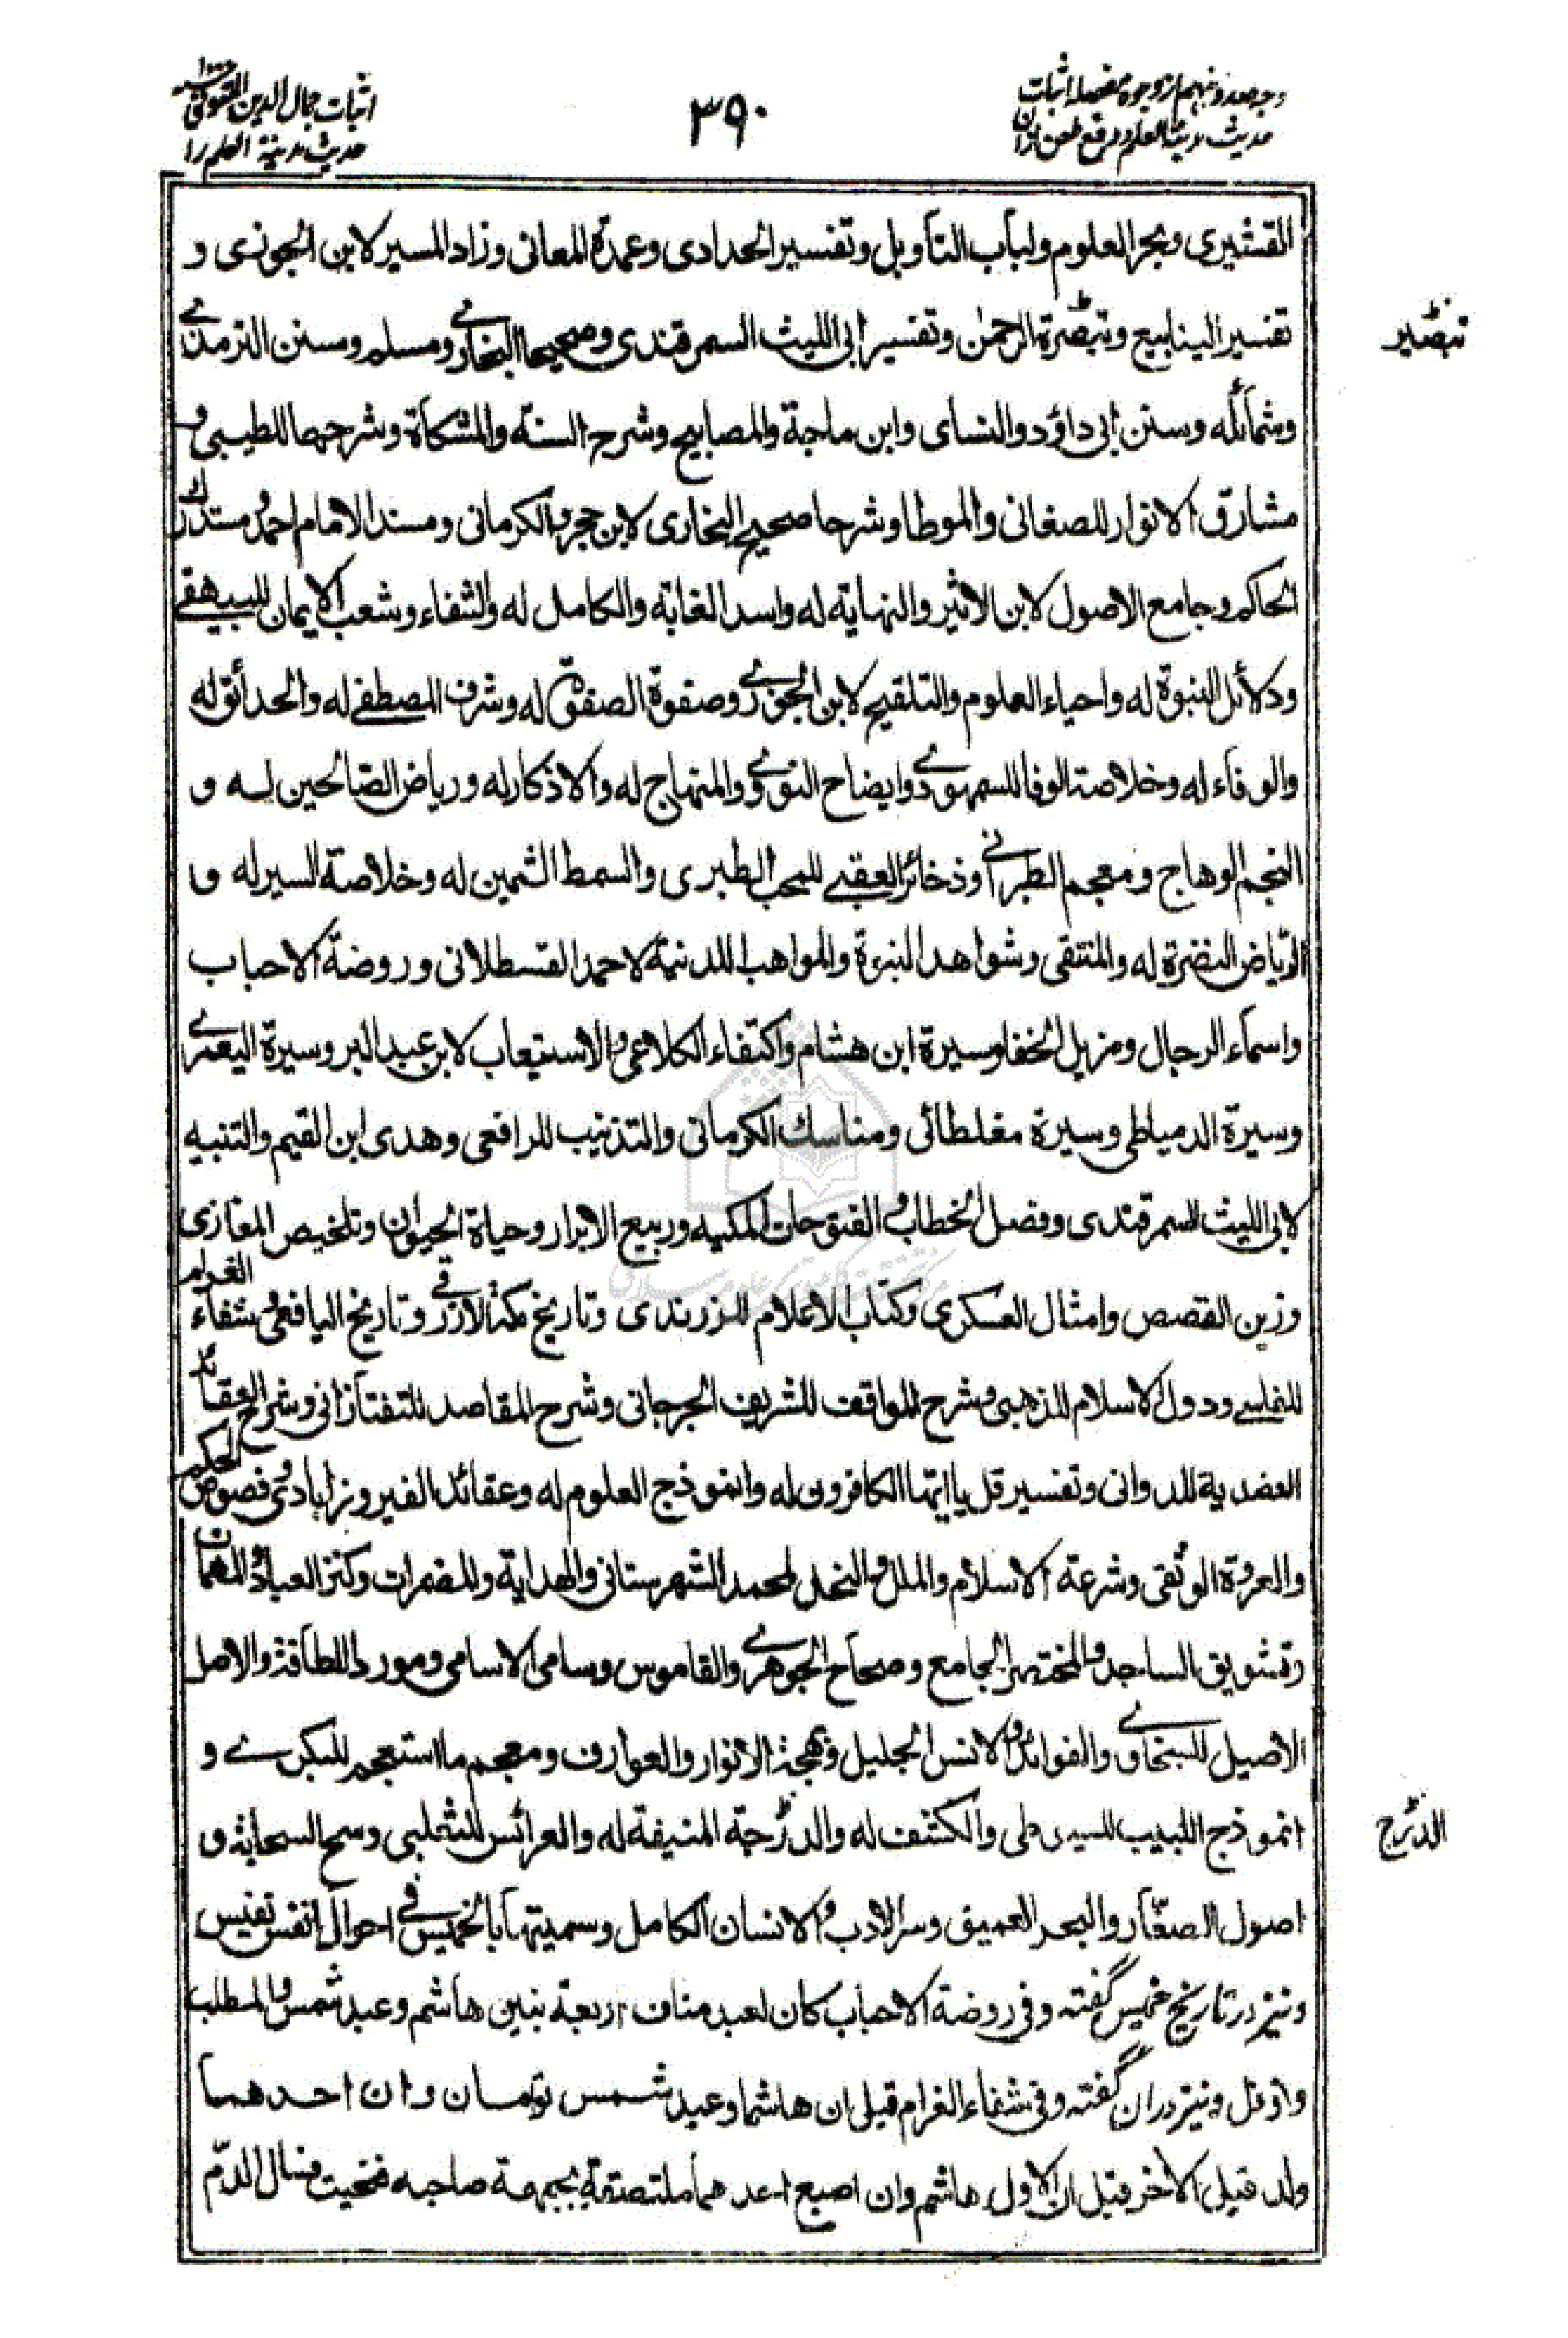 وجه صد و نهم از وجوه مفصله اثبات
حدیث مدینة العلم و رفع طعن ازان
۳۹۰
اثبات جمال الدین
حدیث مدینة العلم را
القشیری وبحر العلوم ولباب التأویل وتفسیر الحدادی وعمدة المعانی وزاد المسیر لابن الجوزی و
تفسیر الینابیع وتبصرة الرحمن وتفسیر ابی اللیث السمرقندی وصحیحا البخاری ومسلم وسنن الترمذی
تبصیر
وشمائله وسنن ابی داؤد والنسای وابن ماجة والمصابیح وشرح السنة والمشکاة وشرحها للطیبی و
مشارق الانوار للصغانی والموطا وشرحا صحیح البخاری لابن حجر والکرمانی ومسند الامام احمد ومستدرك
الحاکم وجامع الاصول لابن الاثیر والنهایة له واسد الغابة والکامل له والشفاء وشعب الایمان للبیهقی
ودلائل النبوة له واحیاء العلوم والتلقیح لابن الجوزی وصفوة الصفوة له وشرف المصطفی له والحدائق له
والوفاء له وخلاصة الوفا للسمهودی وایضاح النووی والمنهاج له والاذکار له وریاض الصالحین له و
النجم الوهاج ومعجم الطبرانی وذخائر العقبی للمحب الطبری والسمط الثمین له وخلاصة السیر له و
الریاض النضرة له والمنتقی وشواهد النبوة والمواهب اللدنیة لاحمد القسطلانی وروضة الاحباب
واسماء الرجال ومزیل الخفا وسیرة ابن هشام واکتفاء الکلاعی والاستیعاب لابن عبد البر وسیرة الیعمری
وسیرة الدمیاطی وسیرة مغلطائی ومناسك الکرمانی والتذنیب للرافعی وهدی ابن القیم والتنبیه
لابی اللیث السمرقندی وفصل الخطاب والفتوحات المکیه وربیع الابرار وحیاة الحیوان وتلخیص المغازی
وزین القصص وامثال العسکری وکتاب الاعلام للزرندی وتاریخ مکة للازرقی وتاریخ الیافعی وشفاء الغرام
للفاسی ودول الاسلام للذهبی وشرح المواقف للشریف الجرجانی وشرح المقاصد للتفتازانی وشرح العقائد
العضدیة للدوانی وتفسیر قل یا ایها الکافرون له وانموذج العلوم له وعقائد الفیروزابادی وفصوص الحکم
والعروة الوثقی وشرعة الاسلام والملل والنحل لمحمد الشهرستانی والهدایة والمضمرات وکنز العباد
وتشویق الساجد والمختصر الجامع وصحاح الجوهری والقاموس وسامی الاسامی ومورد اللطافة والاصل
الاصیل للسخاوی والفوائد والانس الجلیل وبهجة الانوار والعوارف ومعجم ما استعجم للبکری و
انموذج اللبیب للسیوطی والکشف له والدرجة المنیفة له والعرائس للثعلبی وسح السحابة و
الدرج
اصول الصفار والبحر العمیق وسر الادب والانسان الکامل وسمیتها بالخمیس فی احوال انفس نفیس
ونیز در تاریخ خمیس گفته وفی روضة الاحباب کان لعبد مناف اربعة بنین هاشم وعبد شمس والمطلب
ونوفل ونیز دران گفته وفی شفاء الغرام قیل ان هاشما وعبد شمس توءمان وان احدهما
ولد قبل الاخر قیل ان الاول هاشم وان اصبع احدهما ملتصقة بجبهة صاحبه فنحیت فسال الدم